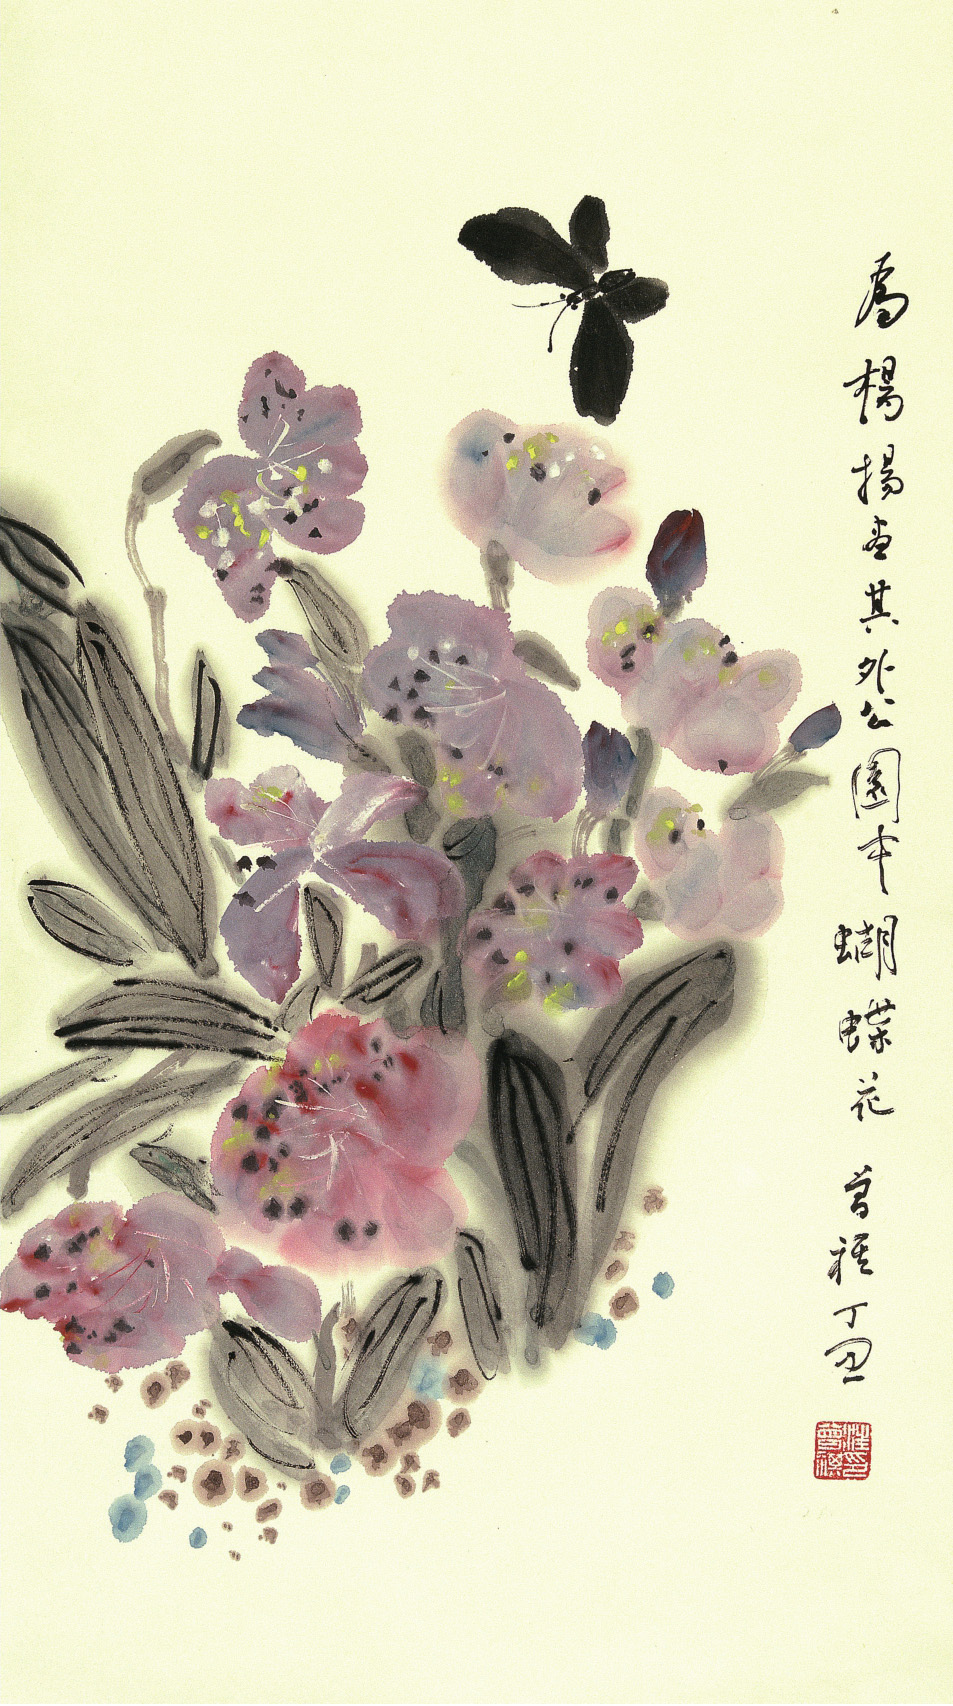 為楊揚畫其外公園中蝴蝶花 曾 丁丑